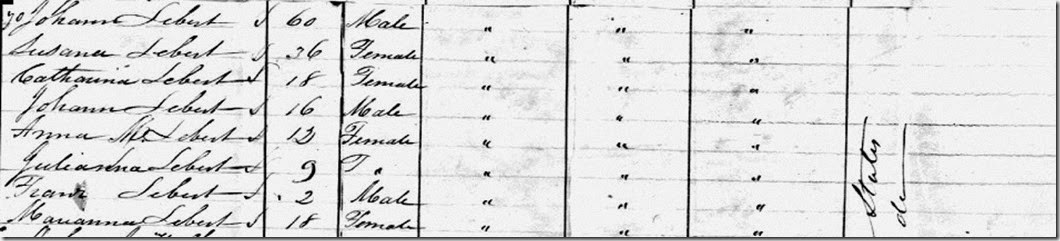 70 Johann Lebert 60 Male " " "
Susana Lebert 36 Female " " "
Catharina Lebert 18 Female " " "
Johann Lebert 16 Male " " "
Anna M. Lebert 12 Female " " "
Julianna Lebert 9 F " " " "
Franz Lebert 2 Male " " "
Marianna Lebert 18 Female " " "
States
do